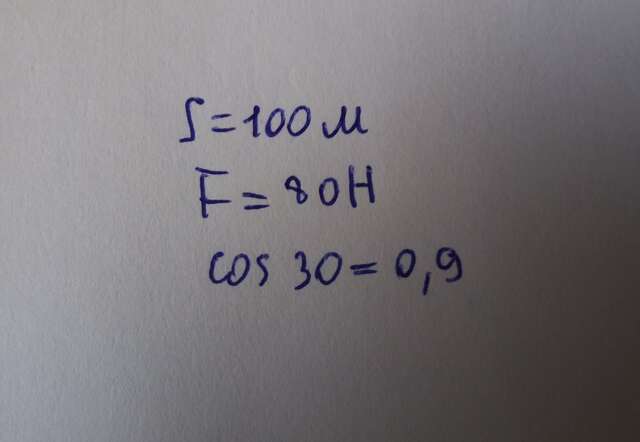 S=100 м
F=80Н
cos 30=0,9